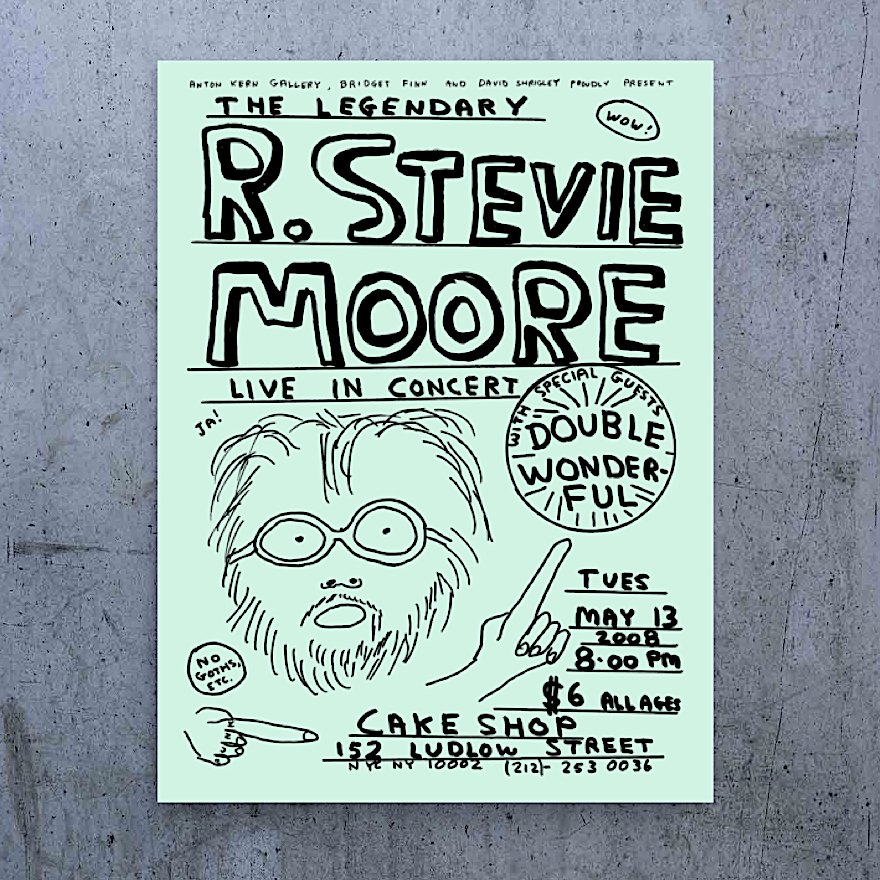 ANTON KERN GALLERY, BRIDGET FINN AND DAVID SHRIGLEY PROUDLY PRESENT
THE LEGENDARY
WOW!
R. STEVIE
MOORE
LIVE IN CONCERT
WITH SPECIAL GUESTS
DOUBLE
WONDER-
FUL
JA!
TUES
MAY 13
2008
8.00 PM
$6 ALL AGES
NO
GOTHS,
ETC.
CAKE SHOP
152 LUDLOW STREET
NYC NY 10002 (212)- 253 0036